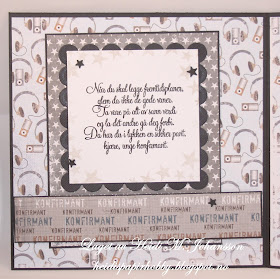 Når du skal legge fremtidsplaner,
glem du ikke de gode vaner.
Ta vare på ett av sann verdi
og la det andre gå deg forbi.
Da har du i lykken en sikker part,
kjære, unge konfirmant.
KONFIRMANT KONFIRMANT
KONFIRMANT KONFIRMANT KONFIRMANT
KONFIRMANT KONFIRMANT KONFIRMANT
KONFIRMANT KONFIRMANT
Johansson